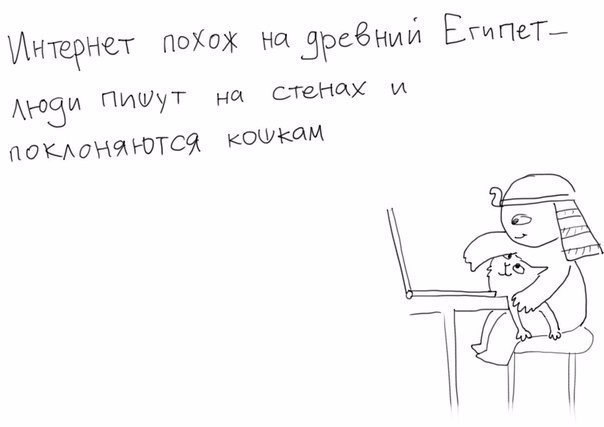 Интернет похож на древний Египет–
люди пишут на стенах и
поклоняются кошкам